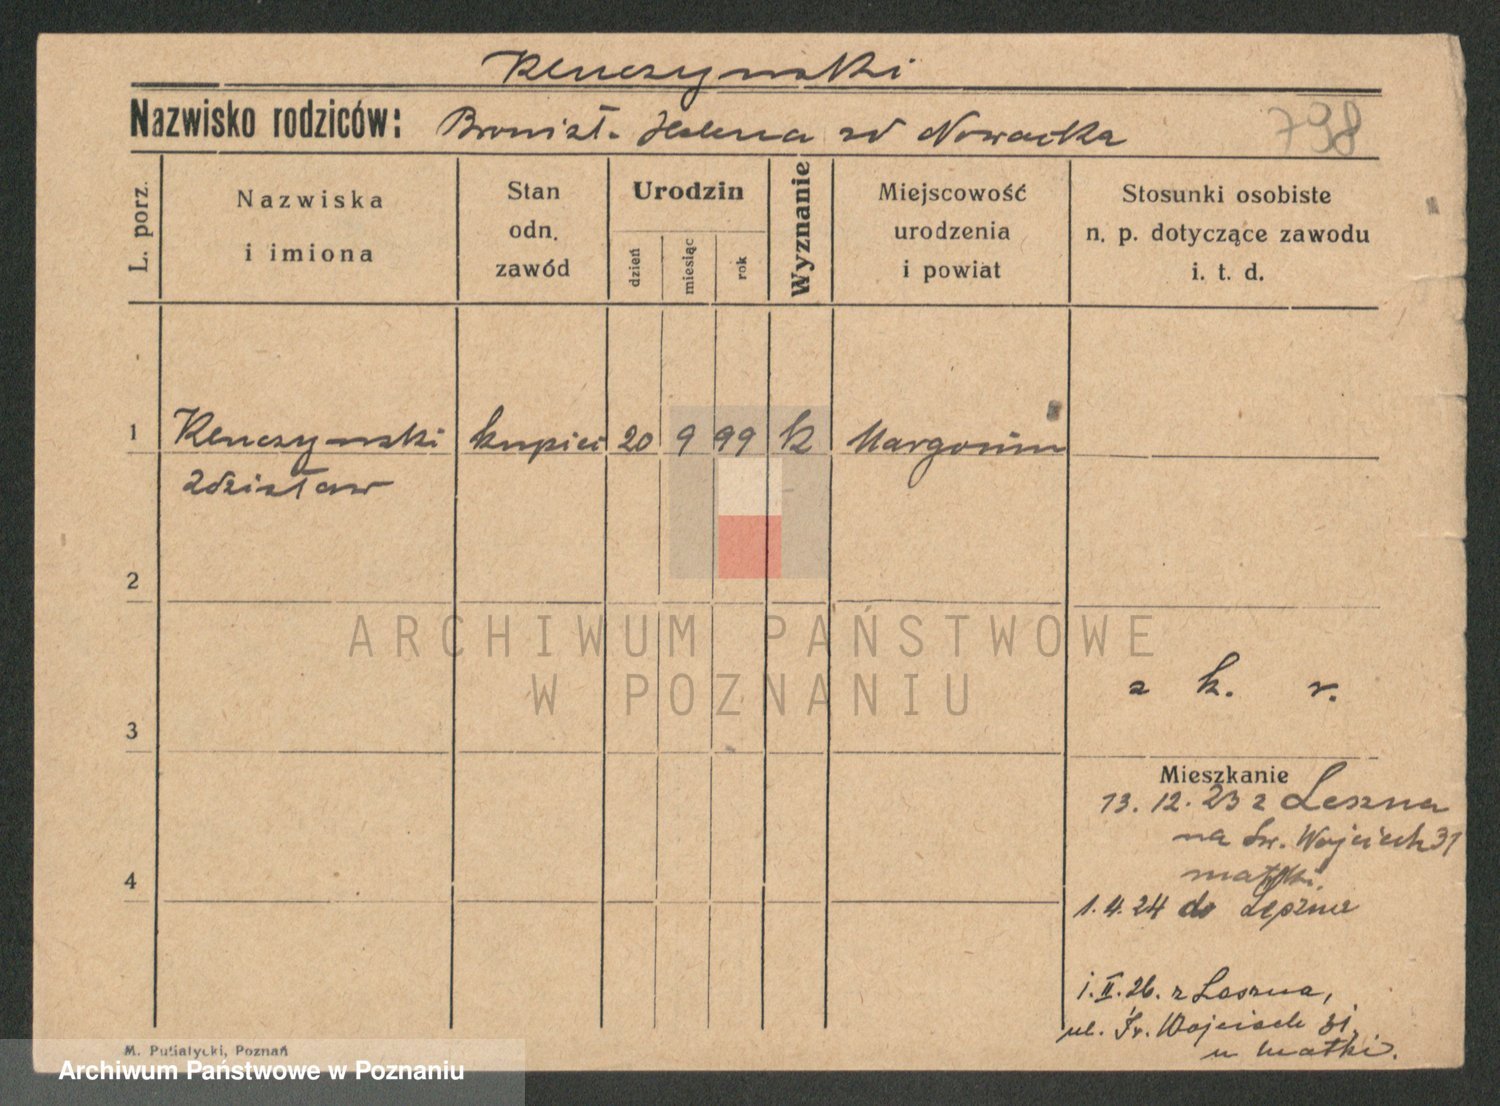 Kenczynski
Nazwisko rodziców: Bronisł. Helena zd Nowacka
798
L. porz.
Nazwiska
i imiona
Stan
odn.
zawód
Urodzin
dzień
miesiąc
rok
Wyznanie
Miejscowość
urodzenia
i powiat
Stosunki osobiste
n. p. dotyczące zawodu
i. t. d.
1 Kenczynski kupiec 20 9 99 k Margonin
Zdzisław
2
ARCHIWUM PAŃSTWOWE
W POZNANIU
z k. r.
3
Mieszkanie
13. 12. 23 z Leszna
na Św. Wojciech 31
matki
4
1.4.24 do Leszna
1. II. 26. z Leszna,
ul. Św. Wojciech 31,
u matki.
M. Putiatycki, Poznań
Archiwum Państwowe w Poznaniu